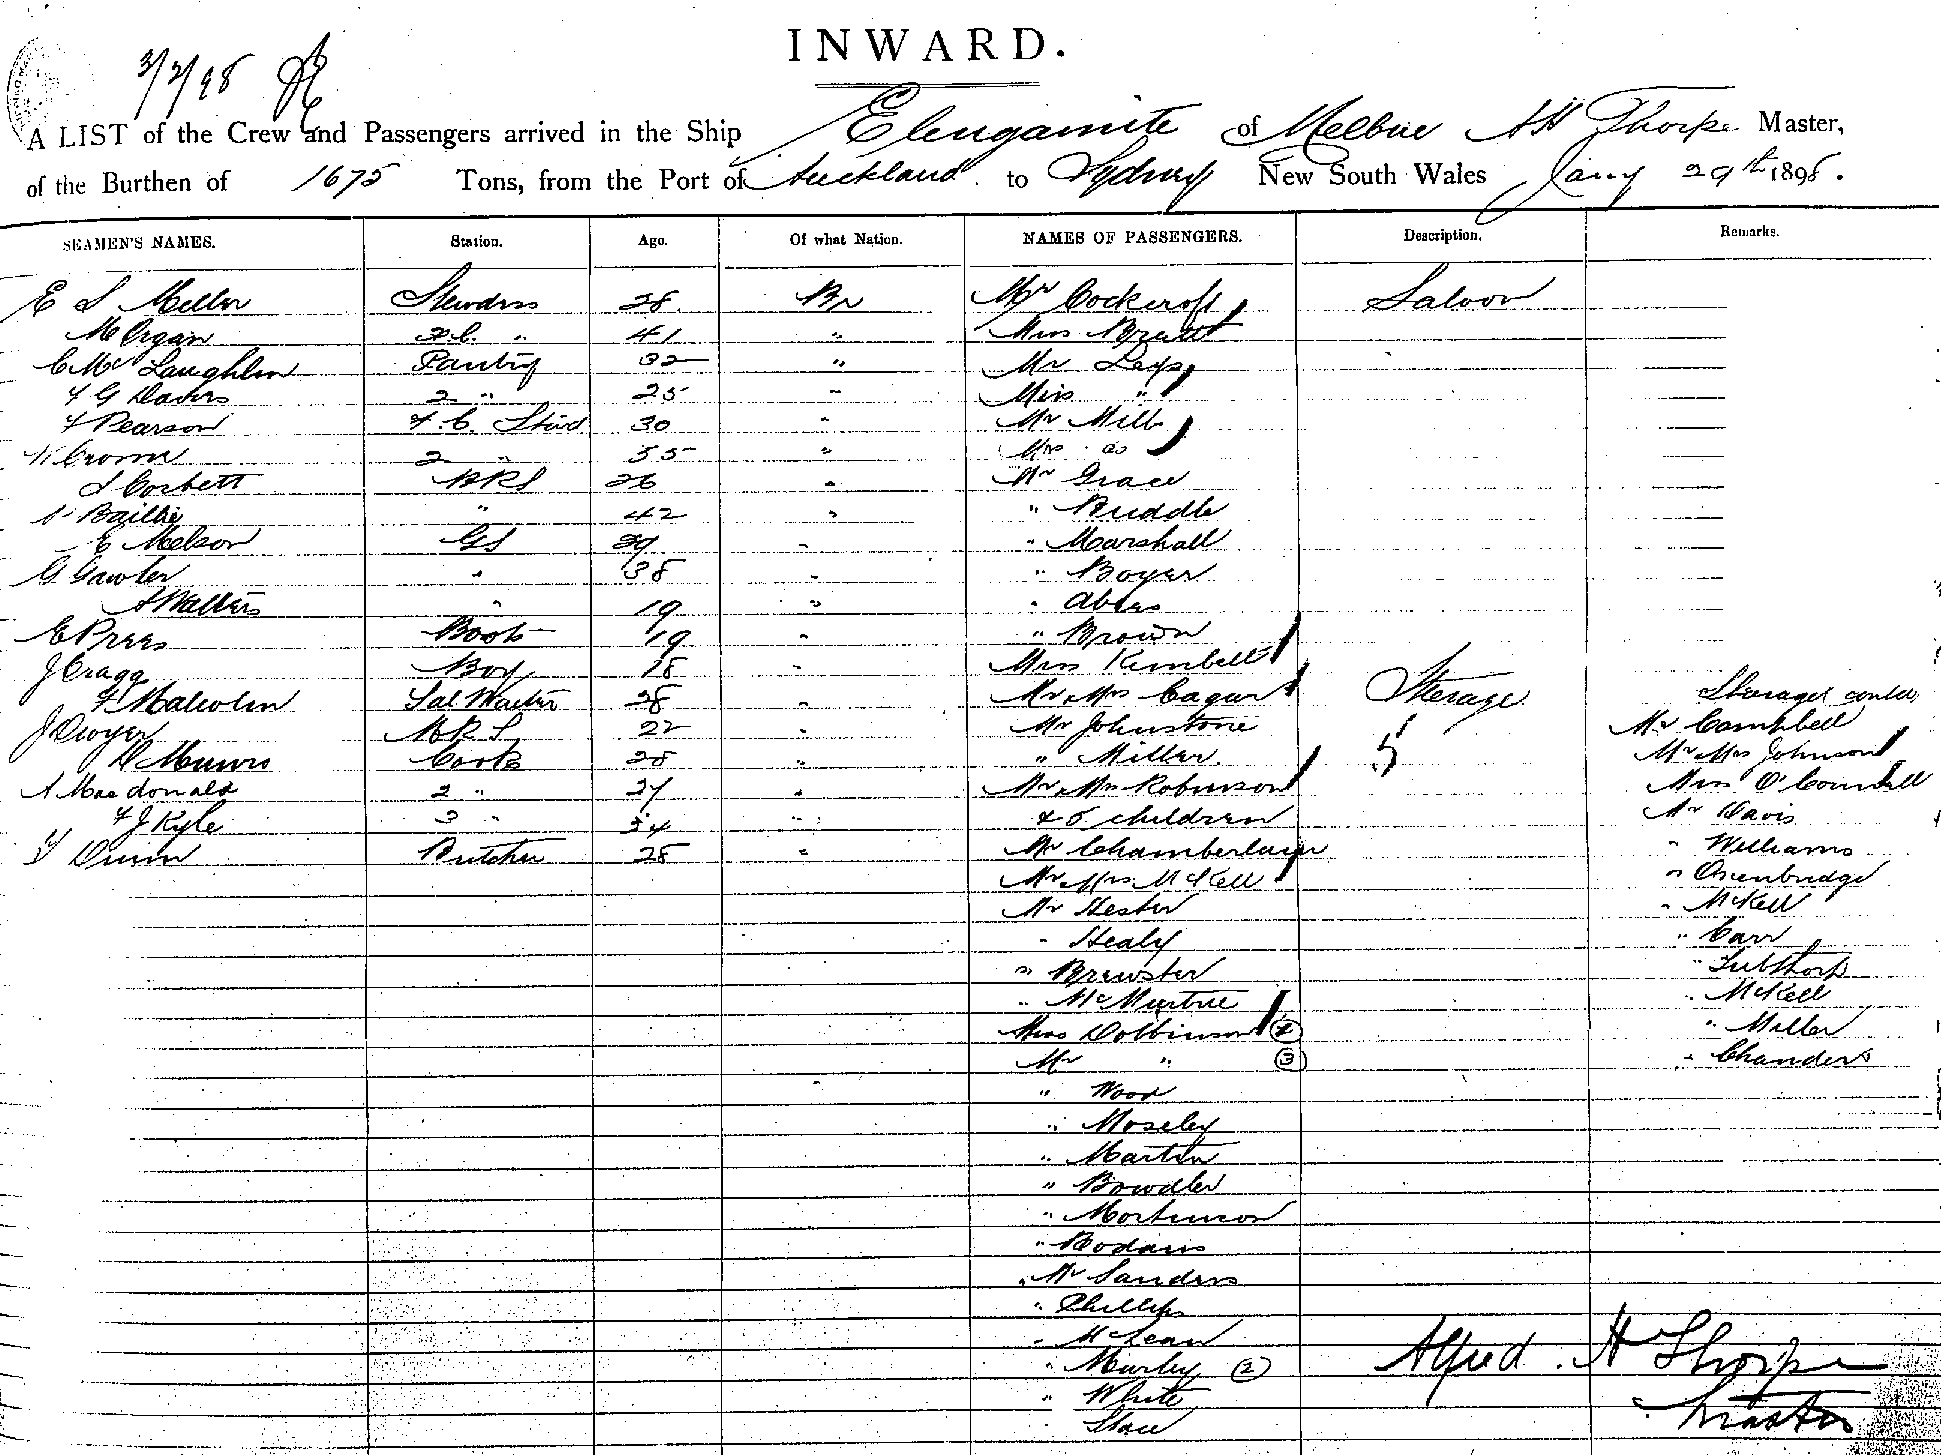 INWARD.
3/2/98
A LIST of the Crew and Passengers arrived in the Ship Elingamite of Melbne AH Thorpe Master,
of the Burthen of 1675 Tons, from the Port of Auckland to Sydney New South Wales Jany 29th 1898.
SEAMEN'S NAMES. Station. Age. Of what Nation. NAMES OF PASSENGERS. Description. Remarks.
E S Miller Stewdess 28 Br Mr Cockcroft Saloon
M Organ 2.C. " 41 " Miss Brett
C Mc Laughlin Pantry 32 " Mr Leys
F G Davis 2 " 25 " Miss "
F Pearson F.C. Stwd 30 " Mr Mills
W Croom 2 " 35 " Mrs do
S Corbett BRS 26 " Mr Grace
Baillie " 42 " " Buddle
E Melson GS 39 " " Marshall
G Gawler " 38 " " Boyer
A Walters " 19 " "
E Prees Boots 19 " " Brown
J Cragg Boy 18 " Miss Kimbell
F Malcolm Sal Waiter 28 " Mr Mrs Cagar Sterage
J Dwyer BRS 22 " Mr Johnstone Mr Campbell
D Munro Cook 28 " " Miller 5 Mr Mrs Johnson
A Macdonald 2 " 27 " Mr Mrs Robinson Miss O'Connell
F J Kyle 3 " 34 " & 5 children Mr Davis
T Dunn Butcher 28 " Mr Chamberlain " Williams
Mr Mrs McKell " Oxenbridge
Mr Hester " McKell
" Healy " Carr
" Brewster "
" McMurtrie " McKell
Miss Dobbinson " Miller
Mr " (3) " Chanders
" Wood
" Moseley
" Martin
" Bowdler
" Mortinson
"
" Mr Sanders
" Phillips
" McLean
" Murley (2) Alfred H Thorpe
" White Master
" Stace